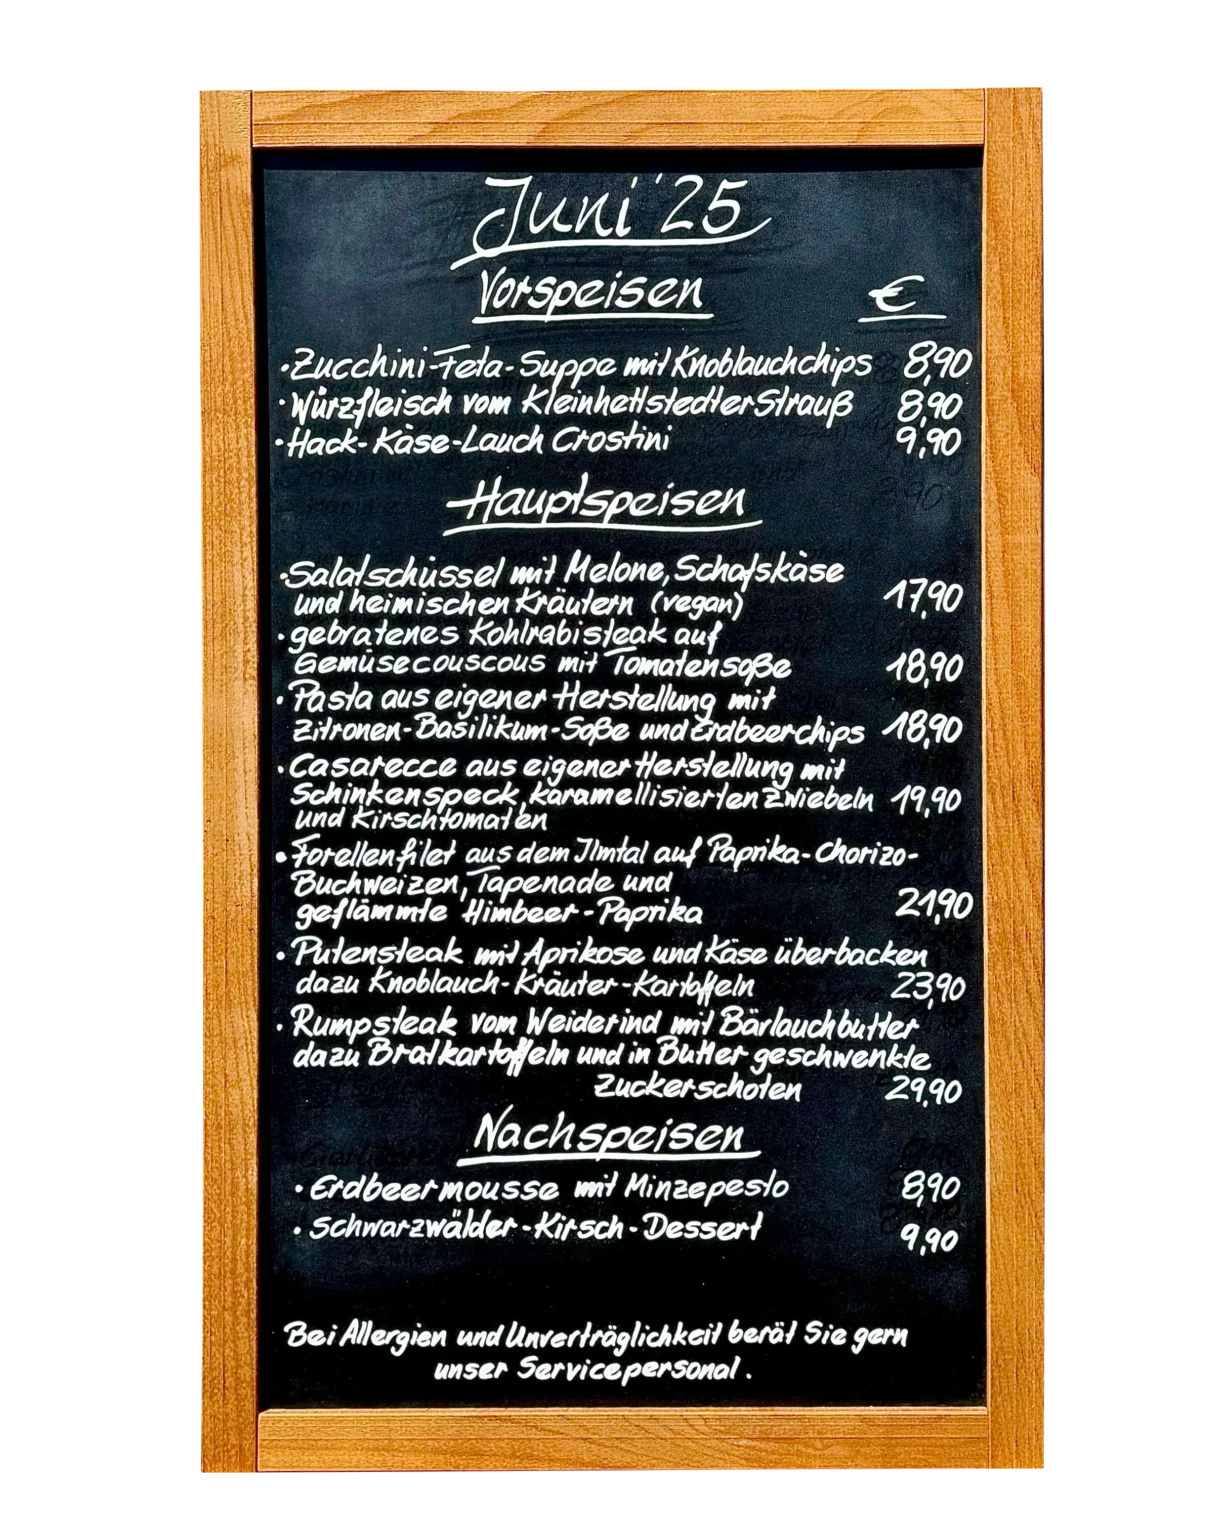 Juni '25
Vorspeisen €
·Zucchini-Feta-Suppe mit Knoblauchchips 8,90
·Würzfleisch vom Kleinhettstedter Strauß 8,90
·Hack-Käse-Lauch Crostini 9,90
Hauptspeisen
·Salatschüssel mit Melone, Schafskäse
und heimischen Kräutern (vegan) 17,90
·gebratenes Kohlrabisteak auf
Gemüsecouscous mit Tomatensoße 18,90
·Pasta aus eigener Herstellung mit
Zitronen-Basilikum-Soße und Erdbeerchips 18,90
·Casarecce aus eigener Herstellung mit
Schinkenspeck, karamellisierten Zwiebeln 19,90
und Kirschtomaten
·Forellenfilet aus dem Ilmtal auf Paprika-Chorizo-
Buchweizen, Tapenade und
geflämmte Himbeer-Paprika 21,90
·Putensteak mit Aprikose und Käse überbacken
dazu Knoblauch-Kräuter-Kartoffeln 23,90
·Rumpsteak vom Weiderind mit Bärlauchbutter
dazu Bratkartoffeln und in Butter geschwenkte
Zuckerschoten 29,90
Nachspeisen
·Erdbeermousse mit Minzepesto 8,90
·Schwarzwälder-Kirsch-Dessert 9,90
Bei Allergien und Unverträglichkeit berät Sie gern
unser Servicepersonal.